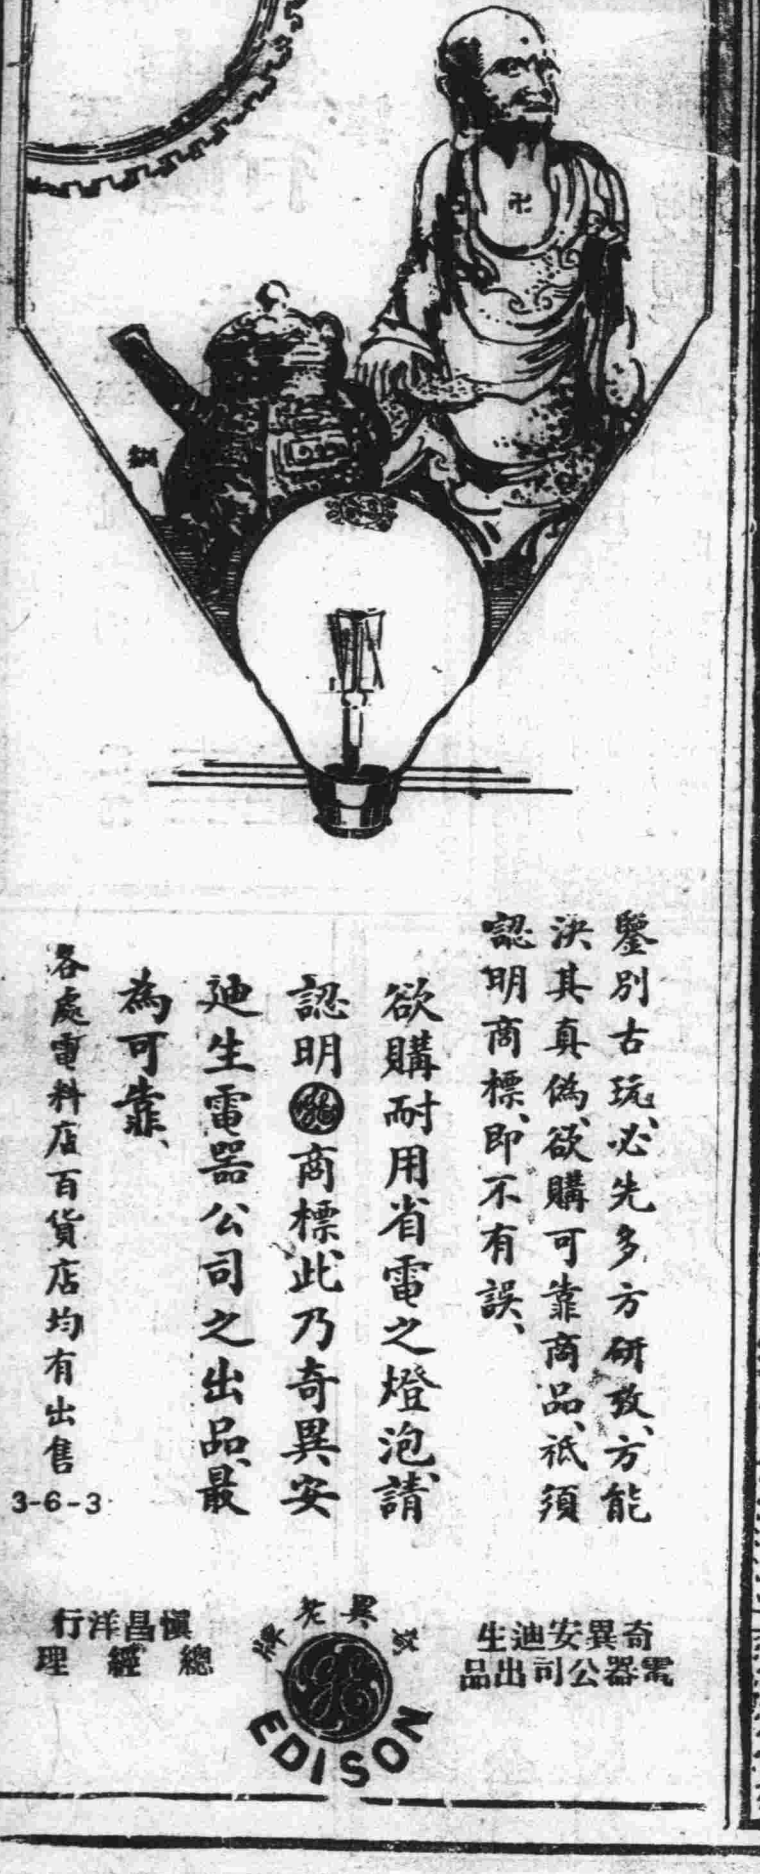 卍
鑒別古玩、必先多方研攷、方能
決其真偽、欲購可靠商品、祇須
認明商標、即不有誤、
欲購耐用省電之燈泡、請
認明GE商標、此乃奇異安
迪生電器公司之出品、最
為可靠、
各處電料店百貨店均有出售
3-6-3
奇異安迪生
電器公司出品
異老牌
GE
EDISON
慎昌洋行
總經理